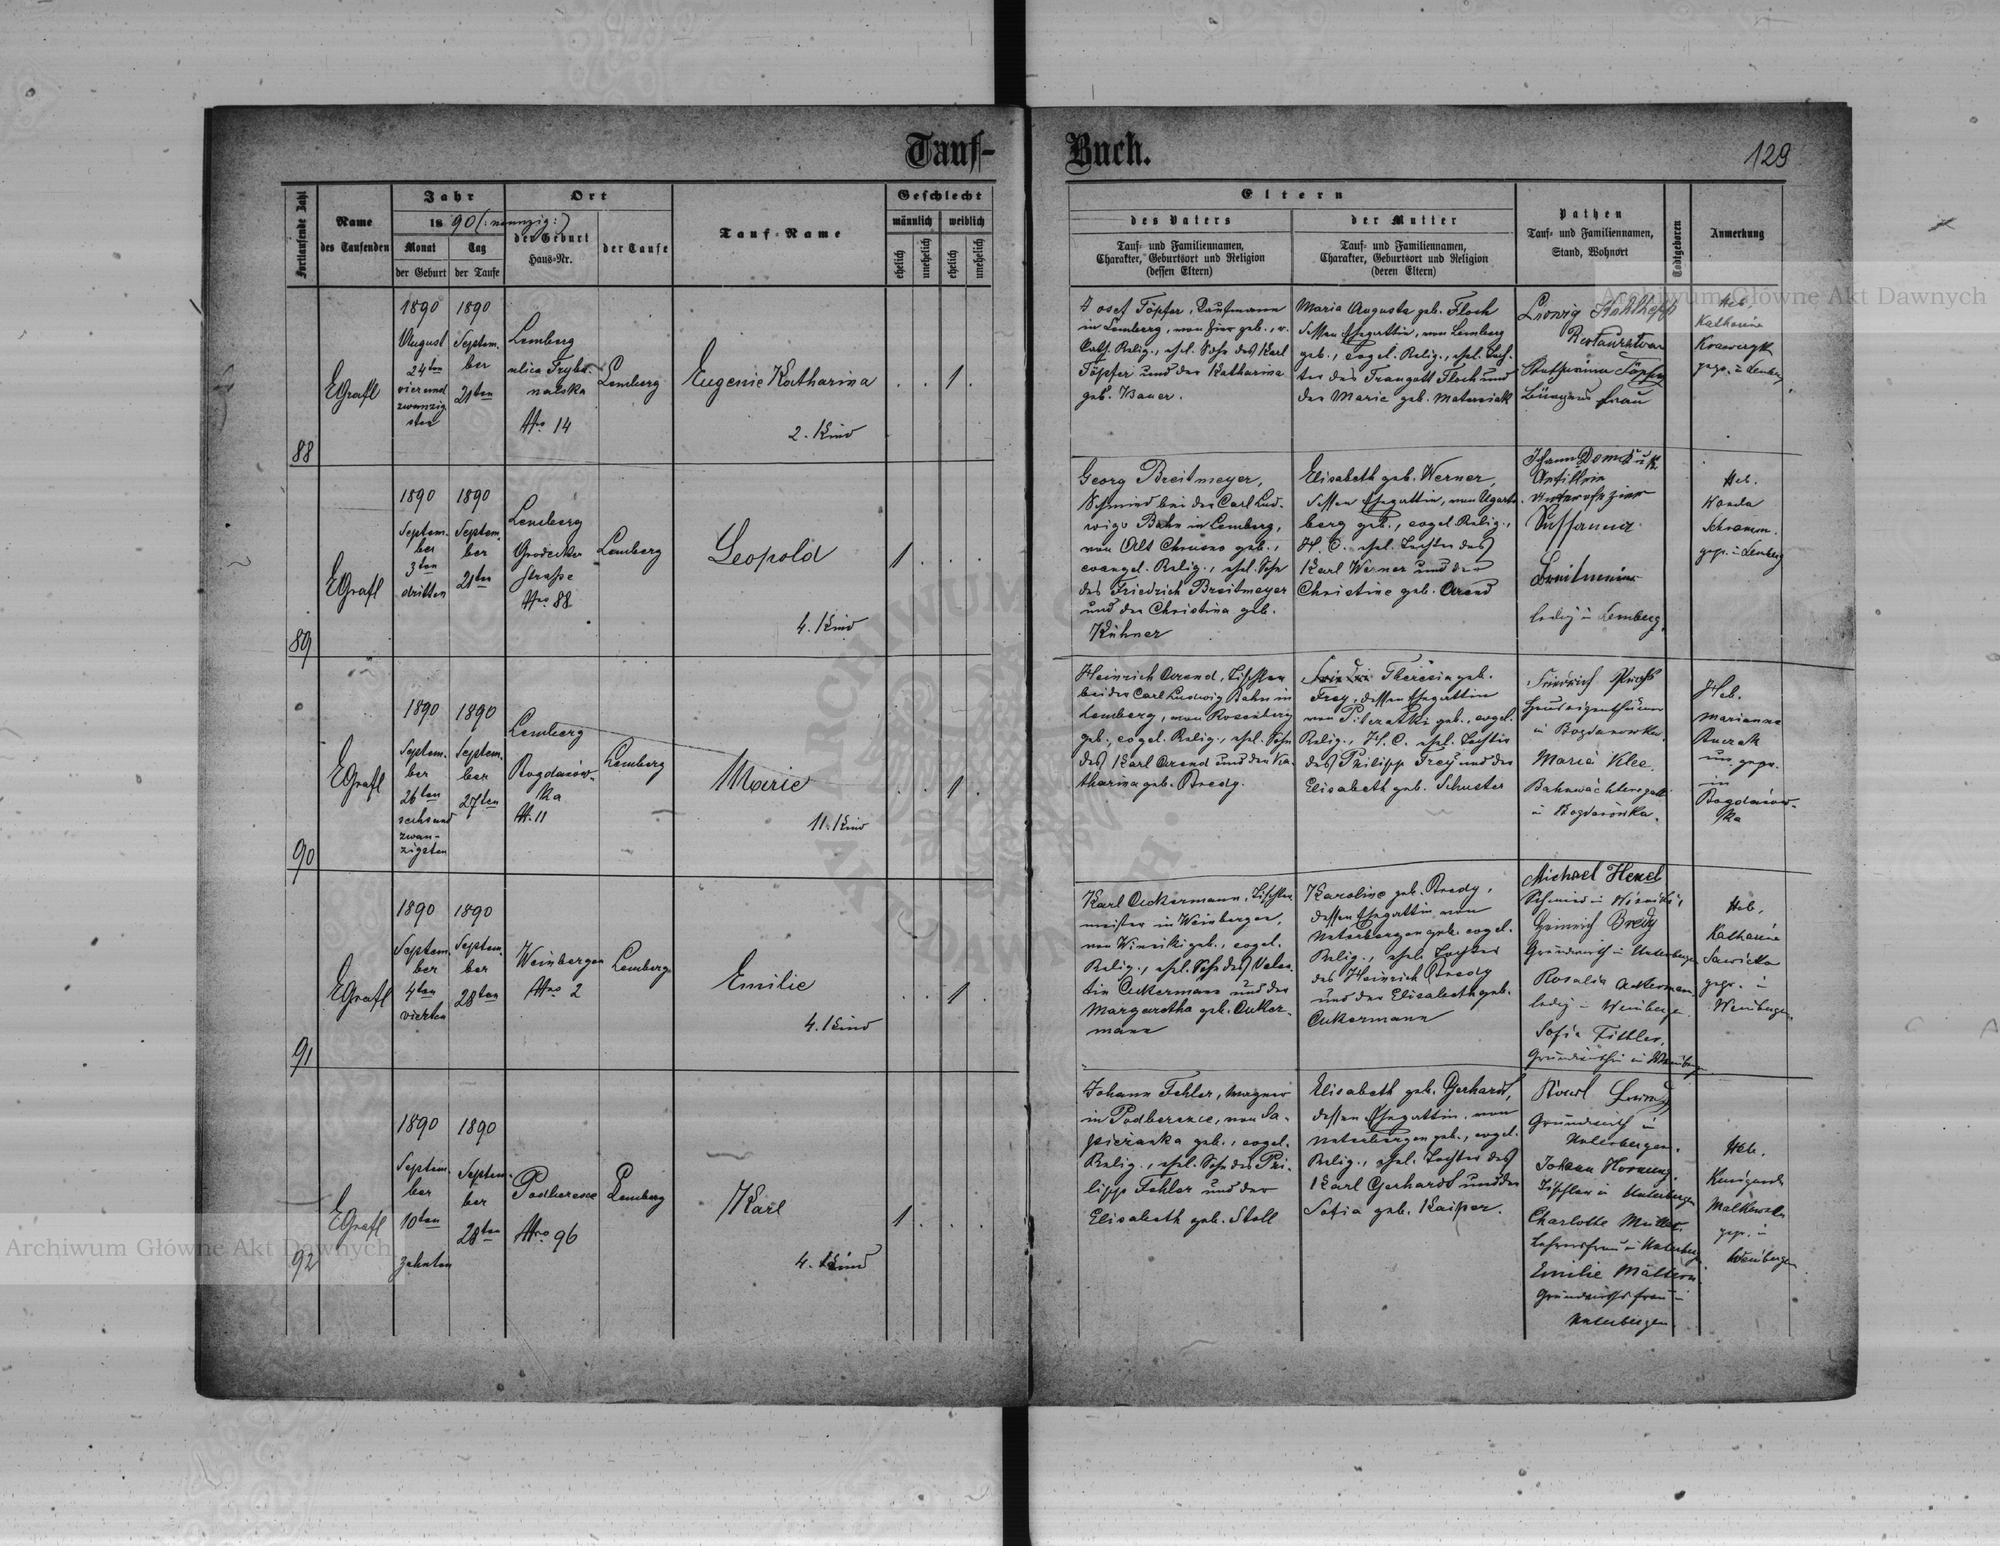 Tauf-
Buch.
129
Fortlaufende Zahl
Name
des Taufenden
Jahr
1890 (: neunzig :)
Monat
der Geburt
Tag
der Taufe
Ort
der Geburt
Haus-Nr.
der Taufe
Tauf-Name
Geschlecht
männlich
weiblich
ehelich
unehelich
ehelich
unehelich
Eltern
des Vaters
Tauf- und Familiennamen,
Charakter, Geburtsort und Religion
(dessen Eltern)
der Mutter
Tauf- und Familiennamen,
Charakter, Geburtsort und Religion
(deren Eltern)
Pathen
Tauf- und Familiennamen,
Stand, Wohnort
Todtgeboren
Anmerkung
88
EGrafl
1890
August
24ten
vierund
zwanzig
sten
1890
Septem.
ber
21ten
Lemberg
ulica Trybu
nalska
Nro 14
Lemberg
Eugenie Katharina
2. Kind
1
Josef Töpfer, Kaufmann
in Lemberg, von hier geb., r.
kath. Relig., ehel. Sohn des Karl
Töpfer und der Katharina
geb. Bauer.
Maria Augusta geb. Floch
dessen Ehegattin, von Lemberg
geb., evgel. Relig., ehel. Toch-
ter des Traugott Floch und
der Marie geb. Materniak
Ludwig
Restaurateur
Katharina Töpfer
Bürgers Frau
Heb.
Katharine
Krawczyk
gepr. in Lemberg
89
EGrafl
1890
Septem.
ber
3ten
dritten
1890
Septem.
ber
21ten
Lemberg
Grodecker
Straße
Nro 88
Lemberg
Leopold
4. Kind
1
Georg Breitmeyer,
Schmied bei der Carl Lud-
wigs Bahn in Lemberg,
von Alt Chrusno geb.,
evangel. Relig., ehel. Sohn
des Friedrich Breitmeyer
und der Christina geb.
Kühner
Elisabeth geb. Werner,
dessen Ehegattin, von Ugarts
berg geb., evgel. Relig.,
H. C. ehel. Tochter des
Karl Werner und der
Christine geb. Arend
Johann
Artillerie
Unterofizier
Sussanna
Breitmeier
ledig in Lemberg.
Heb.
Wanda
Schramm.
gepr. in Lemberg
90
EGrafl
1890
Septem.
ber
26ten
sechsund
zwan-
zigsten
1890
Septem.
ber
27ten
Lemberg
Bogdanów-
ka
N. 11
Lemberg
Marie
11. Kind
1
Heinrich Arend, Tischler
bei der Carl Ludwig Bahn in
Lemberg, von Rosenberg
geb., evgel. Relig., ehel. Sohn
des Karl Arend und der Ka-
tharina geb. Bredy.
Theresia geb.
Frey, dessen Ehegattin
von geb., evgel.
Relig., H. C. ehel. Tochter
des Philipp Frey und der
Elisabeth geb. Schuster
Friedrich
Hauseigenthümer
in Bogdanowka.
Marie Klee.
Bahnwächtersgatt.
in Bogdanówka.
Heb.
Marianna
gepr.
in
Bogdanów-
ka
91
EGrafl
1890
Septem.
ber
4ten
vierten
1890
Septem.
ber
28ten
Weinbergen
Nro 2
Lemberg
Emilie
4. Kind
1
Karl Ackermann, Tischler
meister in Weinbergen,
von Winniki geb., evgel.
Relig., ehel. Sohn des Valen-
tin Ackermann und der
Margaretha geb. Acker-
mann
Karoline geb. Bredy,
dessen Ehegattin von
Unterbergen geb. evgel.
Relig., ehel. Tochter
des Heinrich Bredy
und der Elisabeth geb.
Ackermann
Michael Henel
Schmied in Winniki,
Heinrich Bredy
Grundwirth in Unterbergen
Rosalia Ackermann
ledig in Weinbergen.
Sofia
Grundwirthin in Weinberg
Heb.
Katharine
Sawicka
gepr. in
Weinbergen
92
EGrafl
1890
Septem.
ber
10ten
zehnten
1890
Septem.
ber
28ten
Podberezce
Nro 96
Lemberg
Karl
4. Kind
1
Johann Fehler, Wagner
in Podberezce, von Sa-
pieranka geb., evgel.
Relig., ehel. Sohn des Phi-
lipp Fehler und der
Elisabeth geb. Stoll
Elisabeth geb. Gerhardt,
dessen Ehegattin, von
Unterbergen geb., evgel.
Relig., ehel. Tochter des
Karl Gerhardt und der
Sofia geb. Kaiper.
Grundwirth in
Unterbergen.
Johann Hornung
Tischler in Unterbergen
Charlotte Müller.
Lehrersfrau in Unterberg
Emilie
Grundwirths frau in
Unterbergen
Heb.
Kunigunde
gepr. in
Weinbergen
Archiwum Główne Akt Dawnych
Archiwum Główne Akt Dawnych